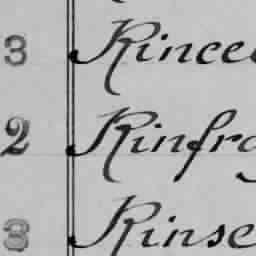 3 Rince
2 Rinfra
3 Rinse